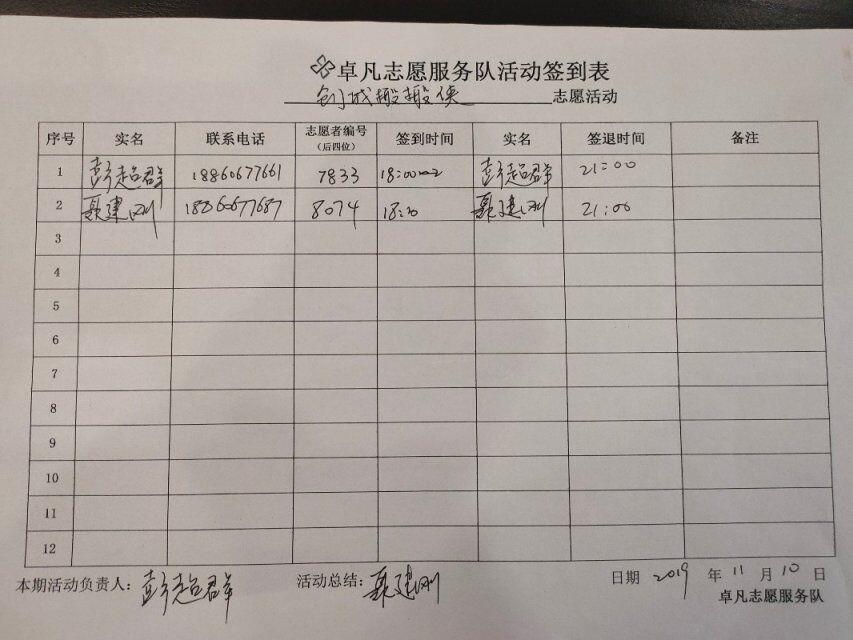 卓凡志愿服务队活动签到表
创城搬搬侠 志愿活动
序号 实名 联系电话 志愿者编号（后四位） 签到时间 实名 签退时间 备注
1 彭超群 18860677661 7833 18:00 彭超群 21:00
2 聂建刚 18860677687 8074 18:00 聂建刚 21:00
3
4
5
6
7
8
9
10
11
12
本期活动负责人：彭超群 活动总结：聂建刚 日期 2019 年 11 月 10 日
卓凡志愿服务队